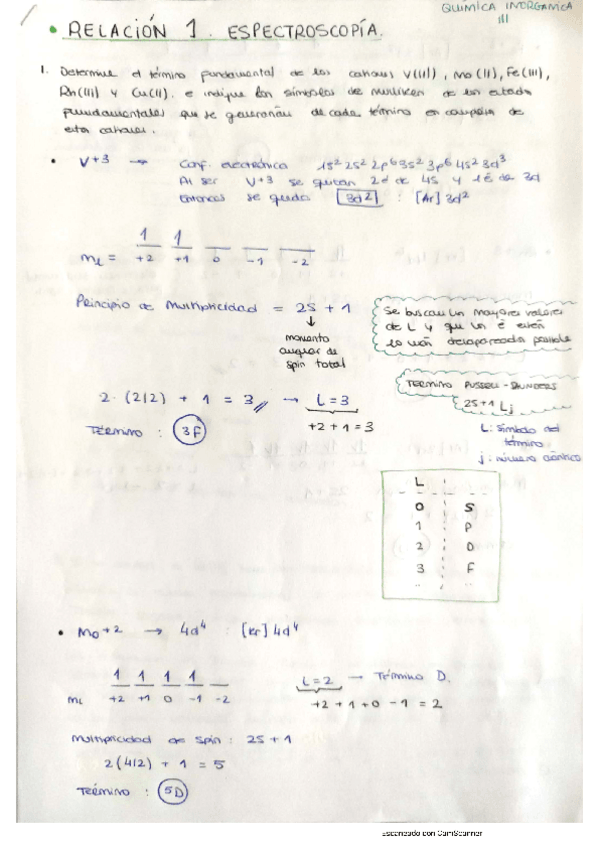 QUÍMICA INORGÁNICA
III
• RELACIÓN 1. ESPECTROSCOPÍA.
1. Determine el término fundamental de los cationes V(III), Mo(II), Fe(III),
Rh(III) y Cu(II). e indique los símbolos de Mulliken de los estados
fundamentales que se generarían de cada término en complejos de
estos cationes.
• V+3 → Conf. electrónica 1s² 2s² 2p⁶ 3s² 3p⁶ 4s² 3d³
Al ser V+3 se quitan 2é de 4s y 1é de 3d
Entonces se queda [3d²] : [Ar] 3d²
1 1
mL = +2 +1 0 -1 -2
Principio de Multiplicidad = 2S + 1
↓
momento
angular de
spin total
Se buscan los mayores valores
de L y que los é estén
lo más desapareados posible
2 · (2|2) + 1 = 3 → L = 3
+2 + 1 = 3
TÉRMINO : 3F
TÉRMINO RUSSELL - SAUNDERS
2S+1 Lj
L: símbolo del
término
j: número cuántico
L
0 S
1 P
2 D
3 F
.. ..
• Mo+2 → 4d⁴ : [Kr] 4d⁴
1 1 1 1
mL +2 +1 0 -1 -2
L = 2 → Término D.
+2 + 1 + 0 - 1 = 2
Multiplicidad de spin : 2S + 1
2(4|2) + 1 = 5
TÉRMINO : 5D
Escaneado con CamScanner